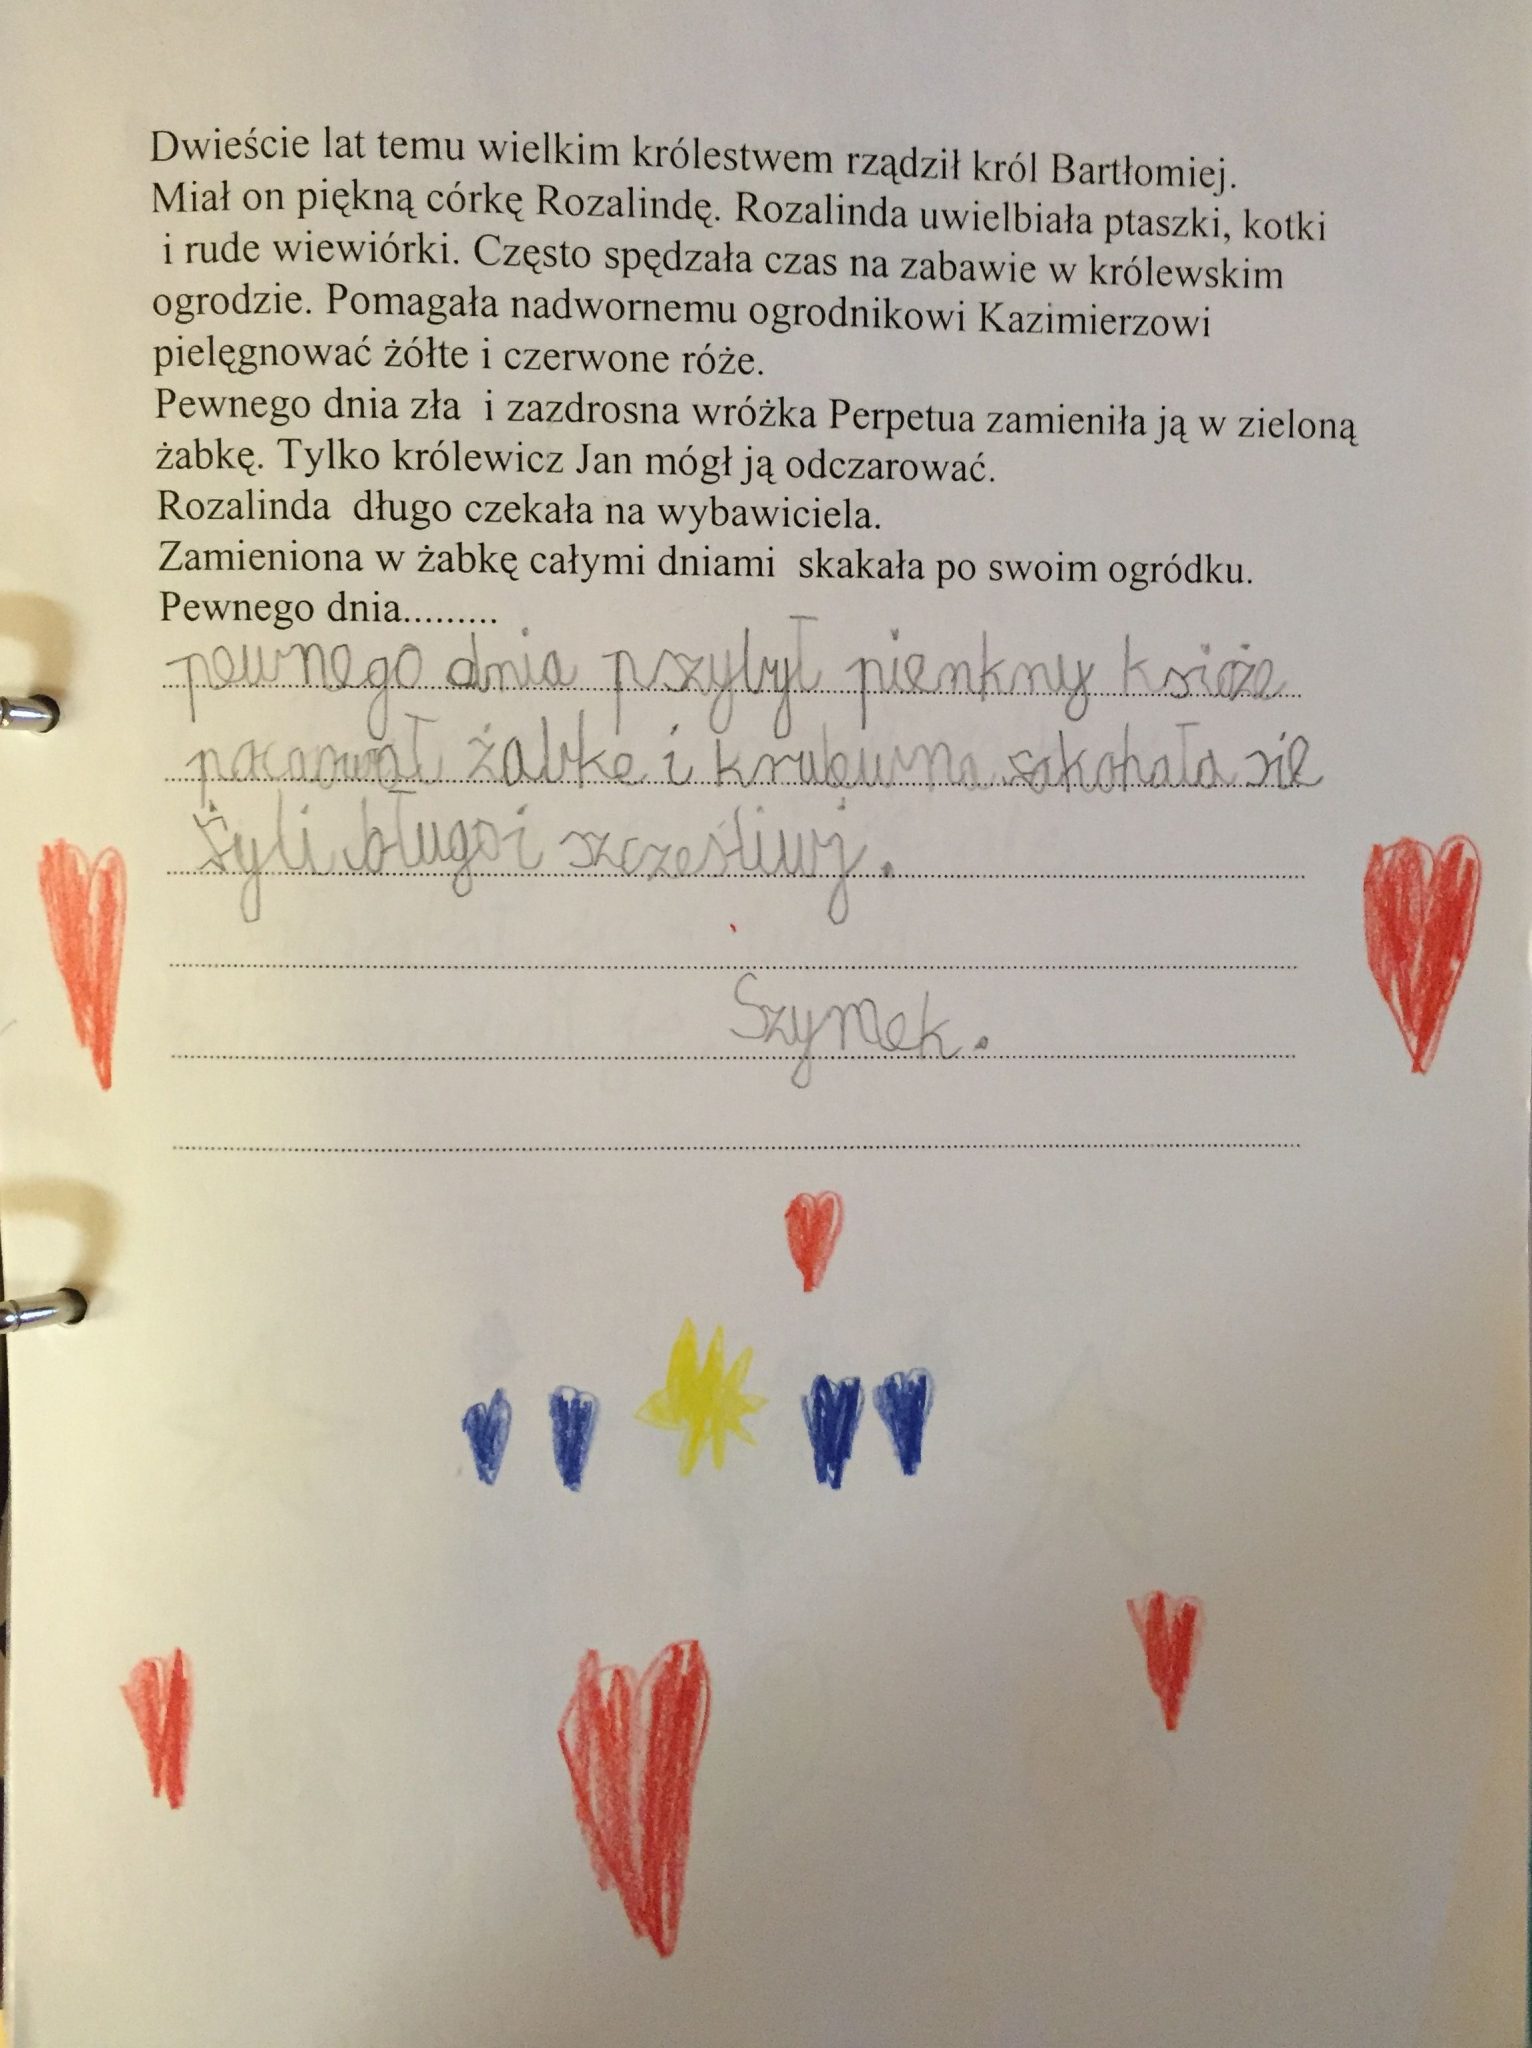 Dwieście lat temu wielkim królestwem rządził król Bartłomiej.
Miał on piękną córkę Rozalindę. Rozalinda uwielbiała ptaszki, kotki
i rude wiewiórki. Często spędzała czas na zabawie w królewskim
ogrodzie. Pomagała nadwornemu ogrodnikowi Kazimierzowi
pielęgnować żółte i czerwone róże.
Pewnego dnia zła i zazdrosna wróżka Perpetua zamieniła ją w zieloną
żabkę. Tylko królewicz Jan mógł ją odczarować.
Rozalinda długo czekała na wybawiciela.
Zamieniona w żabkę całymi dniami skakała po swoim ogródku.
Pewnego dnia.........
pewnego dnia pszybył pienkny ksioże
żabke i sie
żyli długo i szcześliwj.
Szymek.